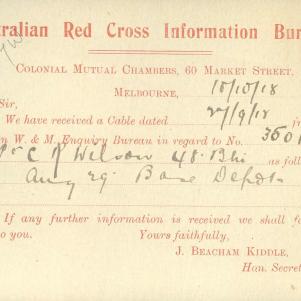 ralian Red Cross Information Bur
Colonial Mutual Chambers, 60 Market Street,
Melbourne, 10/10/18
Sir,
We have received a Cable dated 27/9/18 fr
n W. & M. Enquiry Bureau in regard to No. 3601
Pte C Wilson 48. Btn as follo
Aug 29. Base Depot
If any further information is received we shall fo
to you. Yours faithfully,
J. Beacham Kiddle,
Hon. Secret